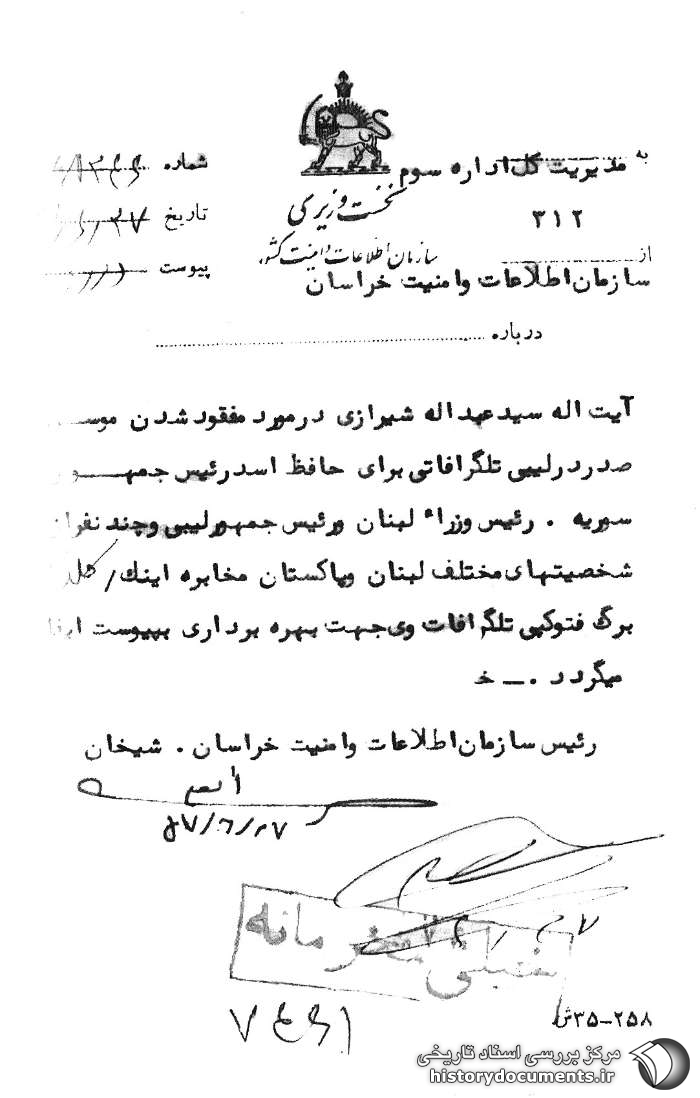 به مدیریت کل اداره سوم
۳۱۲
از
سازمان اطلاعات وامنیت خراسان
نخست وزیری
سازمان اطلاعات و امنیت کشور
شماره
تاریخ
پیوست
درباره
آیت اله سیدعبداله شیرازی درمورد مفقود شدن موسـ
صدردرلیبی تلگرافاتی برای حافظ اسدرئیس جمهـور
سوریه . رئیس وزراء لبنان ورئیس جمهورلیبی وچند نفراز
شخصیتهای مختلف لبنان وپاکستان مخابره اینك
برگ فتوکپی تلگرافات وی جهت بهره برداری بپیوست ایفا
میگردد . ــ خ
رئیس سازمان اطلاعات وامنیت خراسان . شیخان
۵۷/۶/۲۷
خیلی محرمانه
۳۵-۲۵۸ش
مرکز بررسی اسناد تاریخی
historydocuments.ir